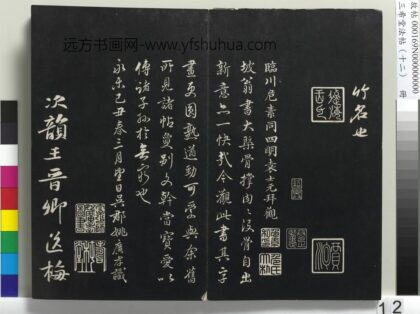 远方书画网-www.yfshuhua.com
故帖 000169N000000000
三希堂法帖(十二) 册
竹名也
臨川危素同四明袁士元拜觀
坡翁書大槩骨撑肉肉没骨自出
新意亦一快哉今觀此書其字
畫更圓熟遒勁可愛與余舊
所見諸帖夐別文幹當寶愛以
傳諸子孫於無窮也
永樂己丑春三月望日吳郡姚廣孝識
次韻王晉卿送梅
12